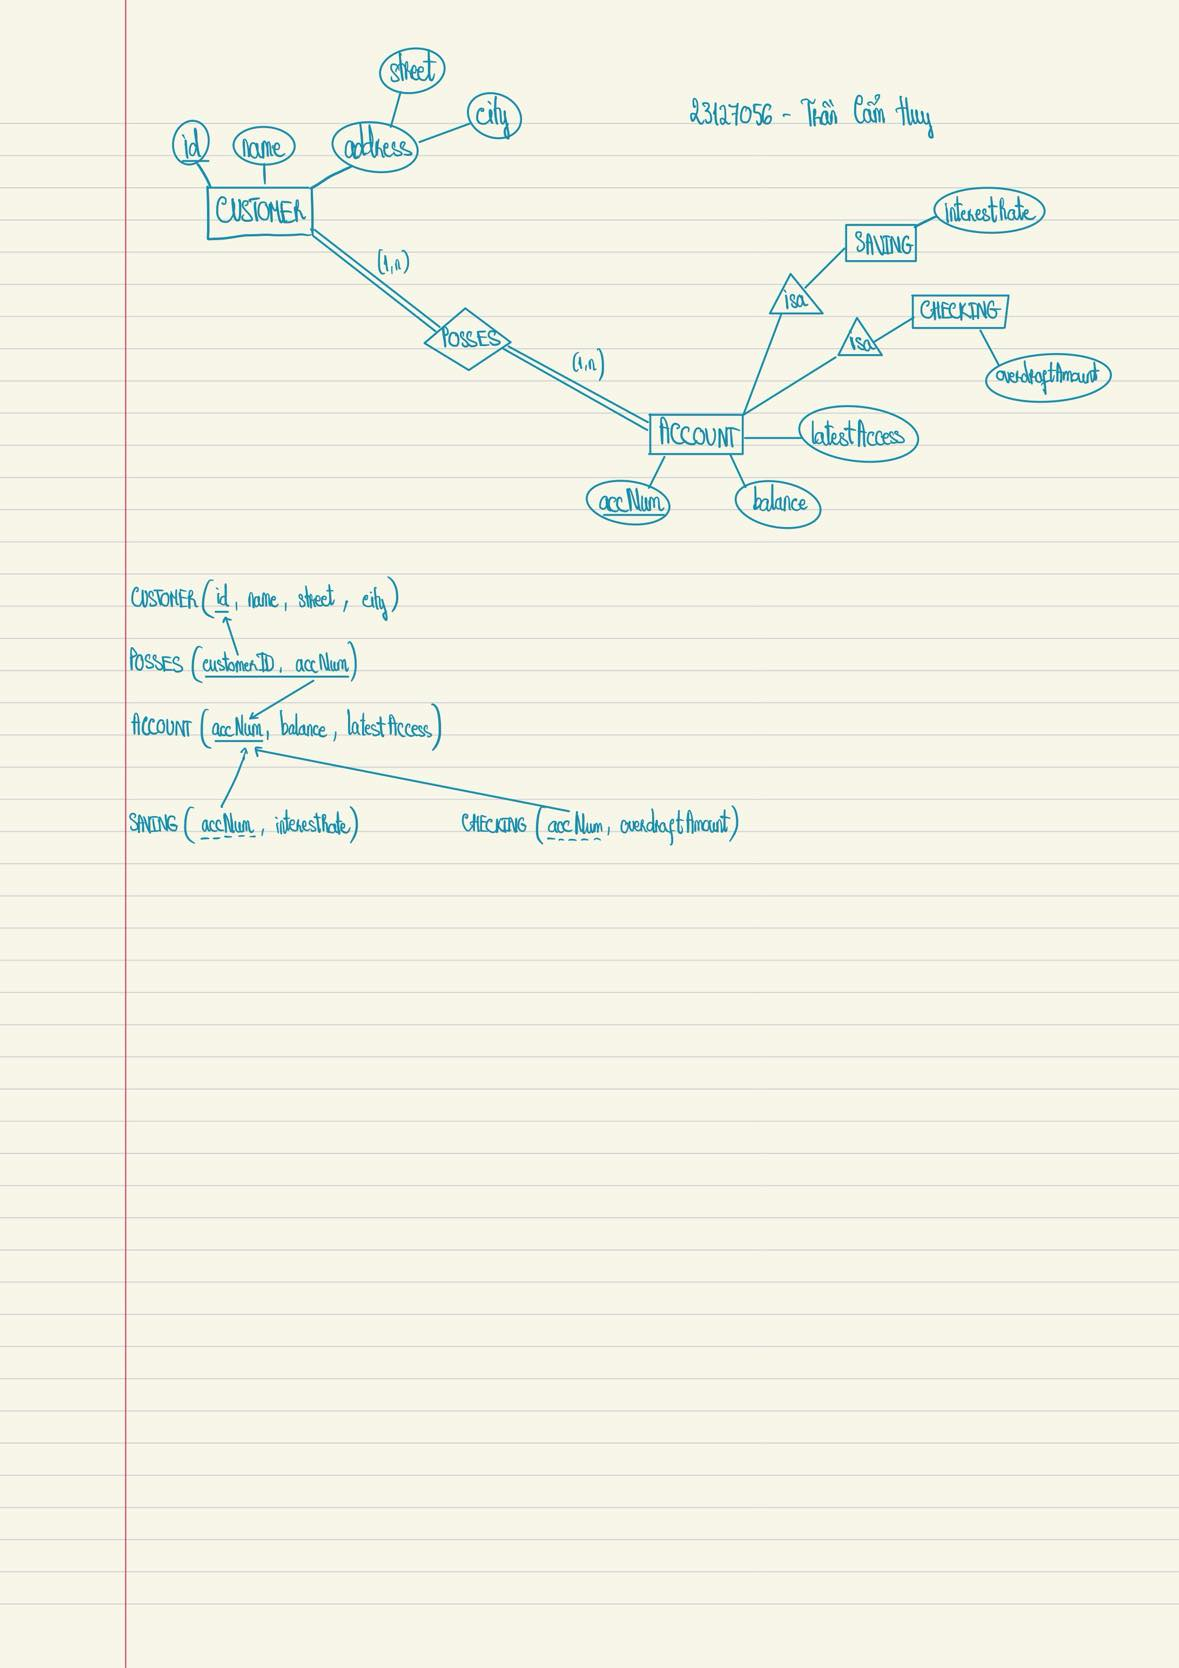 street
city
23127056 - Trần Cẩm Huy
id
name
address
CUSTOMER
interestRate
SAVING
(1,n)
isa
CHECKING
isa
POSSES
(1,n)
overdraftAmount
ACCOUNT
latestAccess
accNum
balance
CUSTOMER (id, name, street, city)
POSSES (customerID, accNum)
ACCOUNT (accNum, balance, latestAccess)
SAVING (accNum, interestRate) CHECKING (accNum, overdraftAmount)